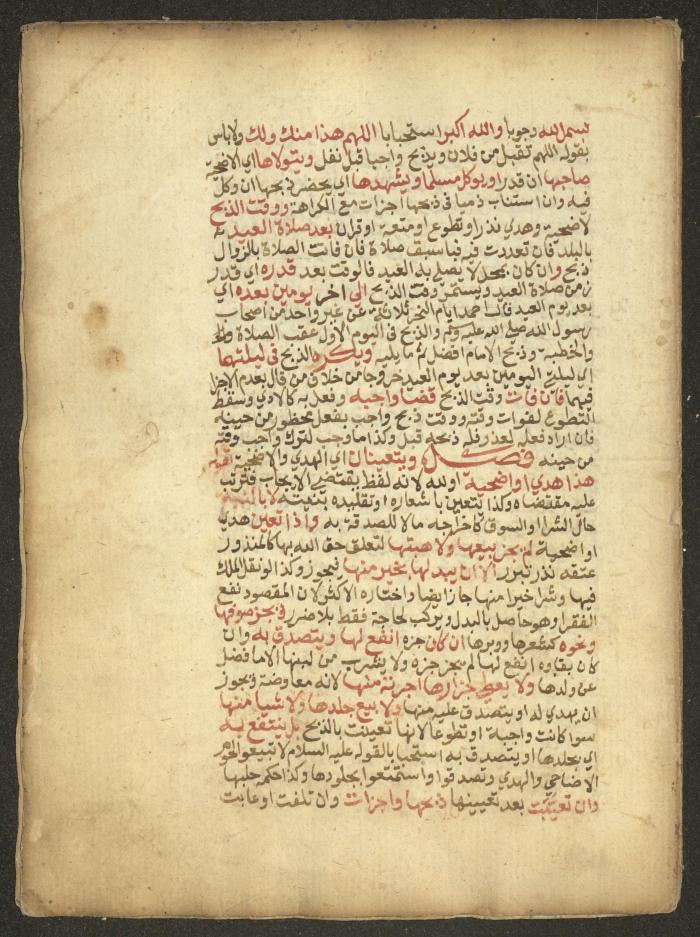 بسم الله وجوبا والله اكبر استحبابا اللهم هذا منك ولك ولا باس
بقوله اللهم تقبل من فلان ويذبح واجبا قبل نفل ويتولاها اي الاضحية
صاحبها ان قدر او يوكل مسلما ويشهدها اي يحضر ذبحها ان وكل
فيه وان استناب ذميا في ذبحها اجزات مع الكراهة ووقت الذبح
لاضحية وهدي نذر او تطوع او متعة او قران بعد صلاة العيد
بالبلد فان تعددت فيه فباسبق صلاة فان فاتت الصلاة بالزوال
ذبح وان كان بمحل لا يصلى به العيد فالوقت بعد قدره اي قدر
زمن صلاة العيد ويستمر وقت الذبح الى اخر يومين بعده اي
بعد يوم العيد قال احمد ايام النحر ثلاثة عن غير واحد من اصحاب
رسول الله صلى الله عليه وسلم والذبح في اليوم الاول عقب الصلاة
والخطبة وذبح الامام افضل ثم ما يليه ويكره الذبح في ليلتهما
اي ليلتي اليومين بعد يوم العيد خروجا من خلاف من قال بعدم الاجزا
فيهما فان فات وقت الذبح قضا واجبه وفعل به كالادي وسقط
التطوع لفوات وقته ووقت ذبح واجب بفعل محظور من حينه
فان اراد فعله لعذر فله ذبحه قبل وكذا ما وجب لترك واجب وقته
من حينه فصل ويتعينان اي الهدي والاضحية بقوله
هذا هدي او اضحية او لله لانه لفظ يقتضي الايجاب فترتب
عليه مقتضاه وكذا يتعين باشعاره او تقليده بنيته لا بالنية
حال الشرا او السوق كاخراجه مالا للصدقة به واذا تعين هدي
او اضحية لم يجز بيعها ولا هبتها لتعلق حق الله بها كالمنذور
عتقه نذر تبرر الا ان يبدلها بخير منها فيجوز وكذا لو نقل الملك
فيها وشرا خيرا منها جاز ايضا واختاره الاكثر لان المقصود نفع
الفقرا وهو حاصل بالبدل ويركب لحاجة فقط بلا ضرر ويجز صوفها
ونحوه كشعرها ووبرها ان كان جزه انفع لها ويتصدق به وان
كان بقاوه انفع لها لم يجز جزه ولا يشرب من لبنها الا ما فضل
عن ولدها ولا يعطي جزارها اجرته منها لانه معاوضة ويجوز
ان يهدي له او يتصدق عليه منها ولا يبيع جلدها ولا شيا منها
سوا كانت واجبة او تطوعا لانها تعينت بالذبح بل ينتفع به
اي بجلدها او يتصدق به استحبابا لقوله عليه السلام لا تبيعوا لحوم
الاضاحي والهدي وتصدقوا واستمتعوا بجلودها وكذا حكم جلها
وان تعيبت بعد تعيينها ذبحها واجزات وان تلفت او عابت